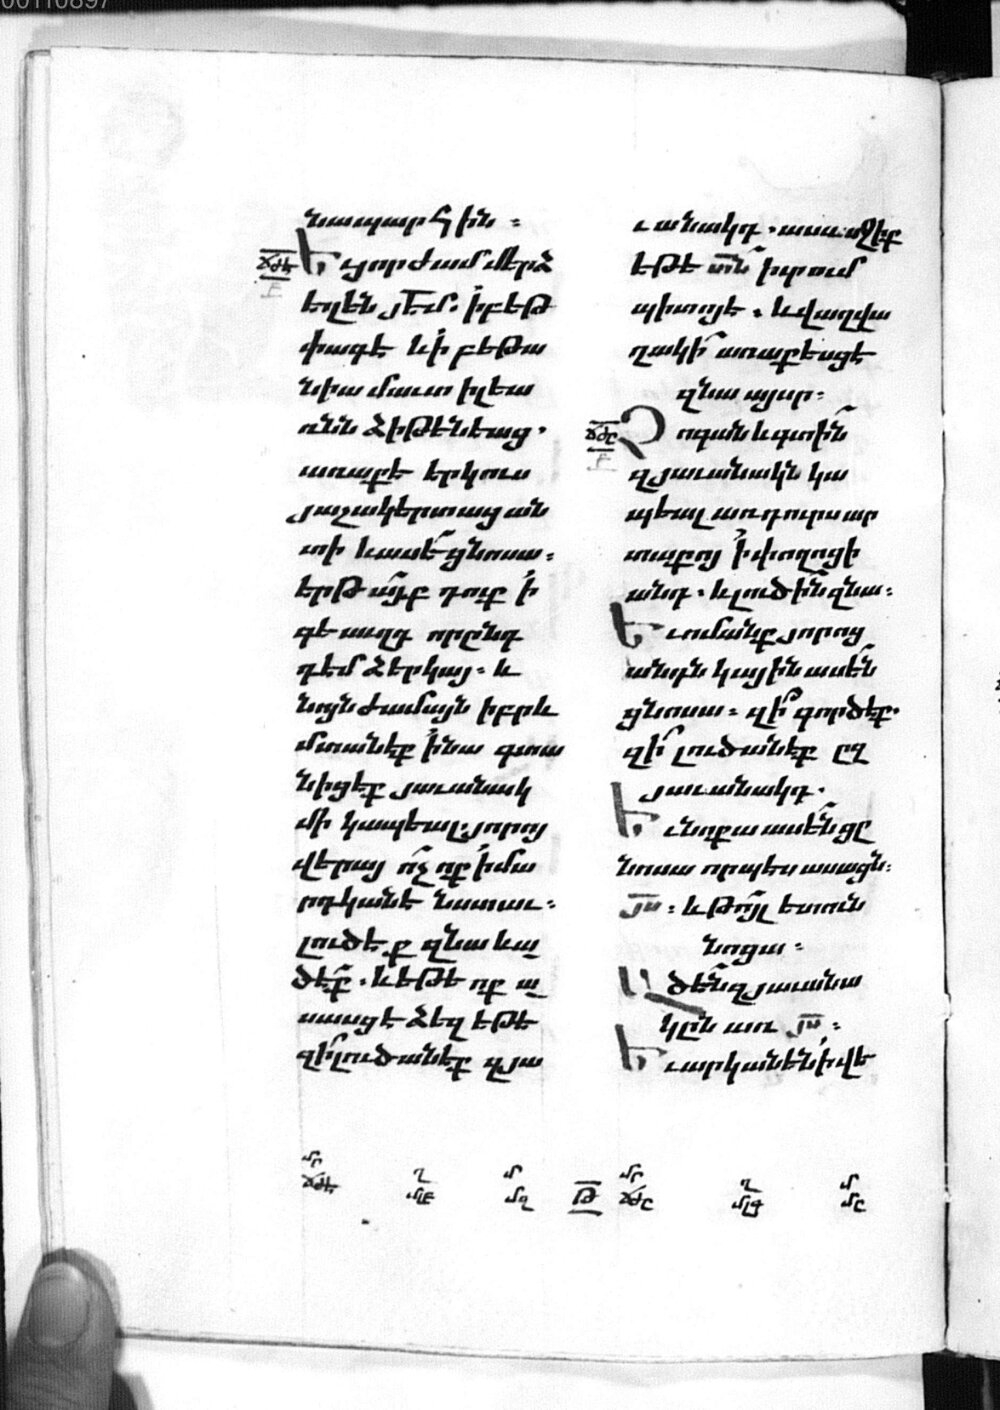 00110897
նապարհին ։
Եւ յորժամ մերձ
եղեն յԵՄ. ի բեթ
փագէ և ի բեթա
նիա մաւտ ի լեա
ռնն ձիթենեաց.
առաքէ երկուս
յաշակերտաց ան
տի և ասէ ցնոսա ։
երթայք դուք ի
գեաւղդ որ ընդ
դէմ ձեր կայ ։ և
նոյն ժամայն իբրև
մտանէք ի նա գտա
նիցէք յաւանակ
մի կապեալ. յորոյ
վերայ ոչ ոք ի մա
րդկանէ նստաւ ։
լուծէք զնա և ա
ծէք. և եթե ոք ա
սասցէ ձեզ եթե
զի լուծանէք զյա
ւանակդ. ասասջիք
եթե ՏՆ իւրում
պիտոյէ. և վաղվա
ղակի առաքեսցէ
զնա այսր ։
Չոգան և գտին
զյաւանակն կա
պեալ առ դուրս ար
տաքոյ ի փողոցի
անդ. և լուծին զնա ։
Եւ ոմանք յորոց
անդն կային ասեն
ցնոսա ։ զի՞ գործէք.
զի լուծանէք ըզ
յաւանակդ.
Եւ նոքա ասեն ցը
նոսա որպես ասաց ն
ՅՍ ։ և թոյլ ետուն
նոցա ։
Ածեն զյաւանա
կըն առ ՅՍ ։
Եւ արկանեն ի վե
ՃԺԷ
Բ
ՃԺԸ
Բ
մր
ՃԺԷ
ղ
մ
Թ
մր
ՃԺԸ
ղ
մ